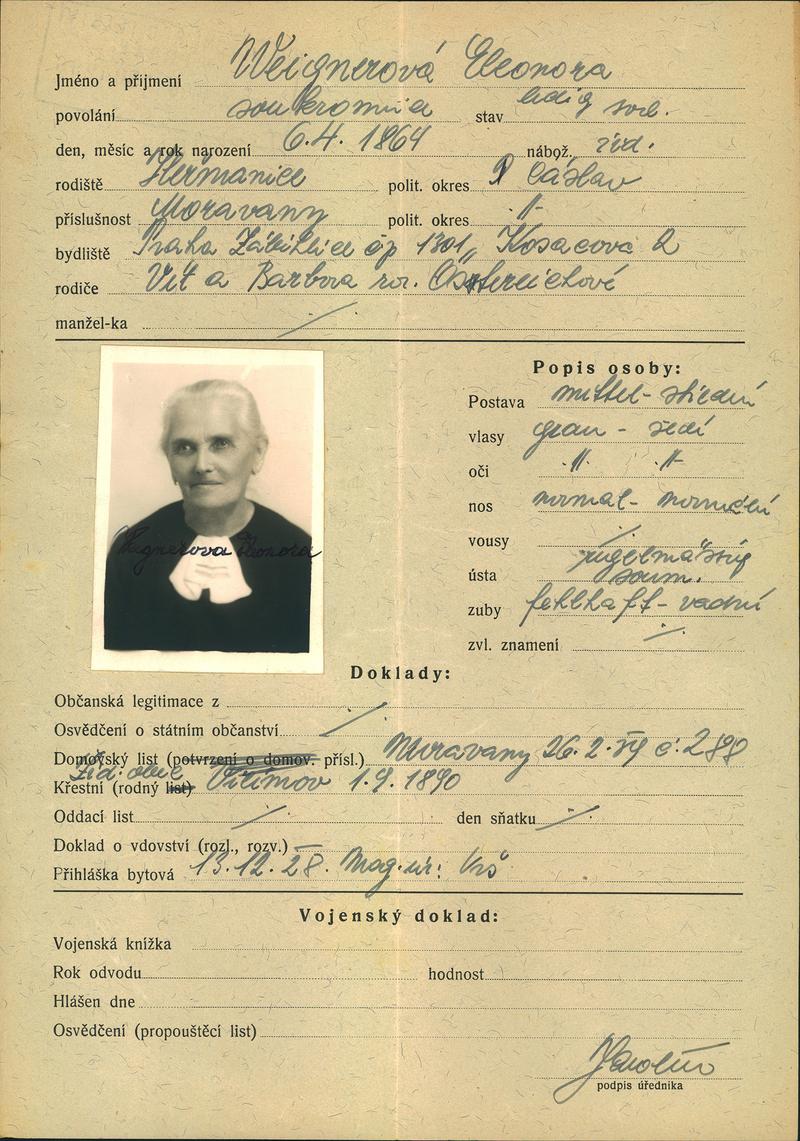 Jméno a příjmení Weignerová Eleonora
povolání soukromnice stav ledig svob.
den, měsíc a rok narození 6.4. 1864 nábož. žid.
rodiště Heřmanice polit. okres Čáslav
příslušnost Moravany polit. okres -"-
bydliště Praha Záběhlice čp 1301, Kosacová 2
rodiče Vít a Barbora roz. Österreichové
manžel-ka ./.
Popis osoby:
Postava mittel - střední
vlasy grau - šedí
oči -"- -"-
nos normal - normální
vousy ./.
ústa regelmäßig soum.
zuby fehlhaft - vadní
zvl. znamení ./.
Weignerova Eleonora
Doklady:
Občanská legitimace z
Osvědčení o státním občanství ./.
Domovský list (potvrzení o domov. přísl.) Moravany 26.2. č: 2890
Křestní (rodný list) Žid. obec 1.9. 1890
Oddací list ./. den sňatku ./.
Doklad o vdovství (rozl., rozv.) —
Přihláška bytová 13.12.28. Mag. úř:
Vojenský doklad:
Vojenská knížka
Rok odvodu hodnost
Hlášen dne
Osvědčení (propouštěcí list)
podpis úředníka